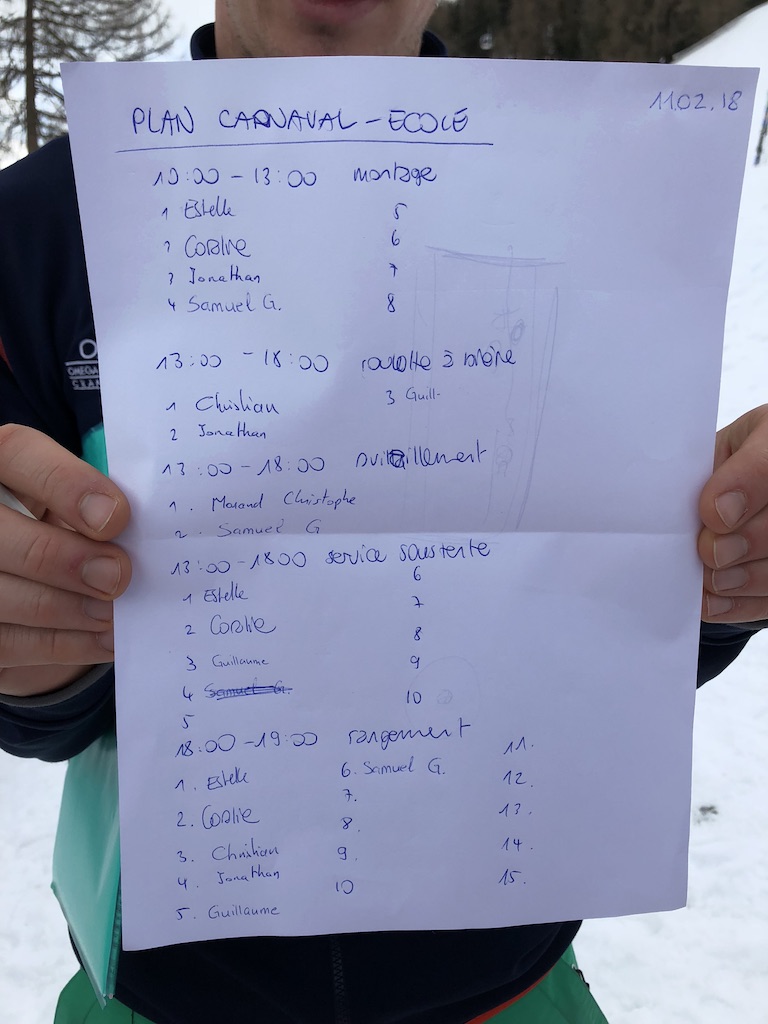 11.02.18
PLAN CARNAVAL - ECOLE
10:00 - 13:00 montage
1 Estelle 5
2 Coralie 6
3 Jonathan 7
4 Samuel G. 8
13:00 - 18:00 roulotte à
1 Christian 3 Guill-
2 Jonathan
13:00 - 18:00
1. Morand Christophe
2. Samuel G
13:00 - 18:00 service sous tente
6
1 Estelle 7
2 Coralie 8
3 Guillaume 9
4 Samuel G. 10
5
18:00 - 19:00 rangement 11.
1. Estelle 6. Samuel G. 12.
7.
2. Coralie 8. 13.
3. Christian 9. 14.
4. Jonathan 10 15.
5. Guillaume
OMEGA